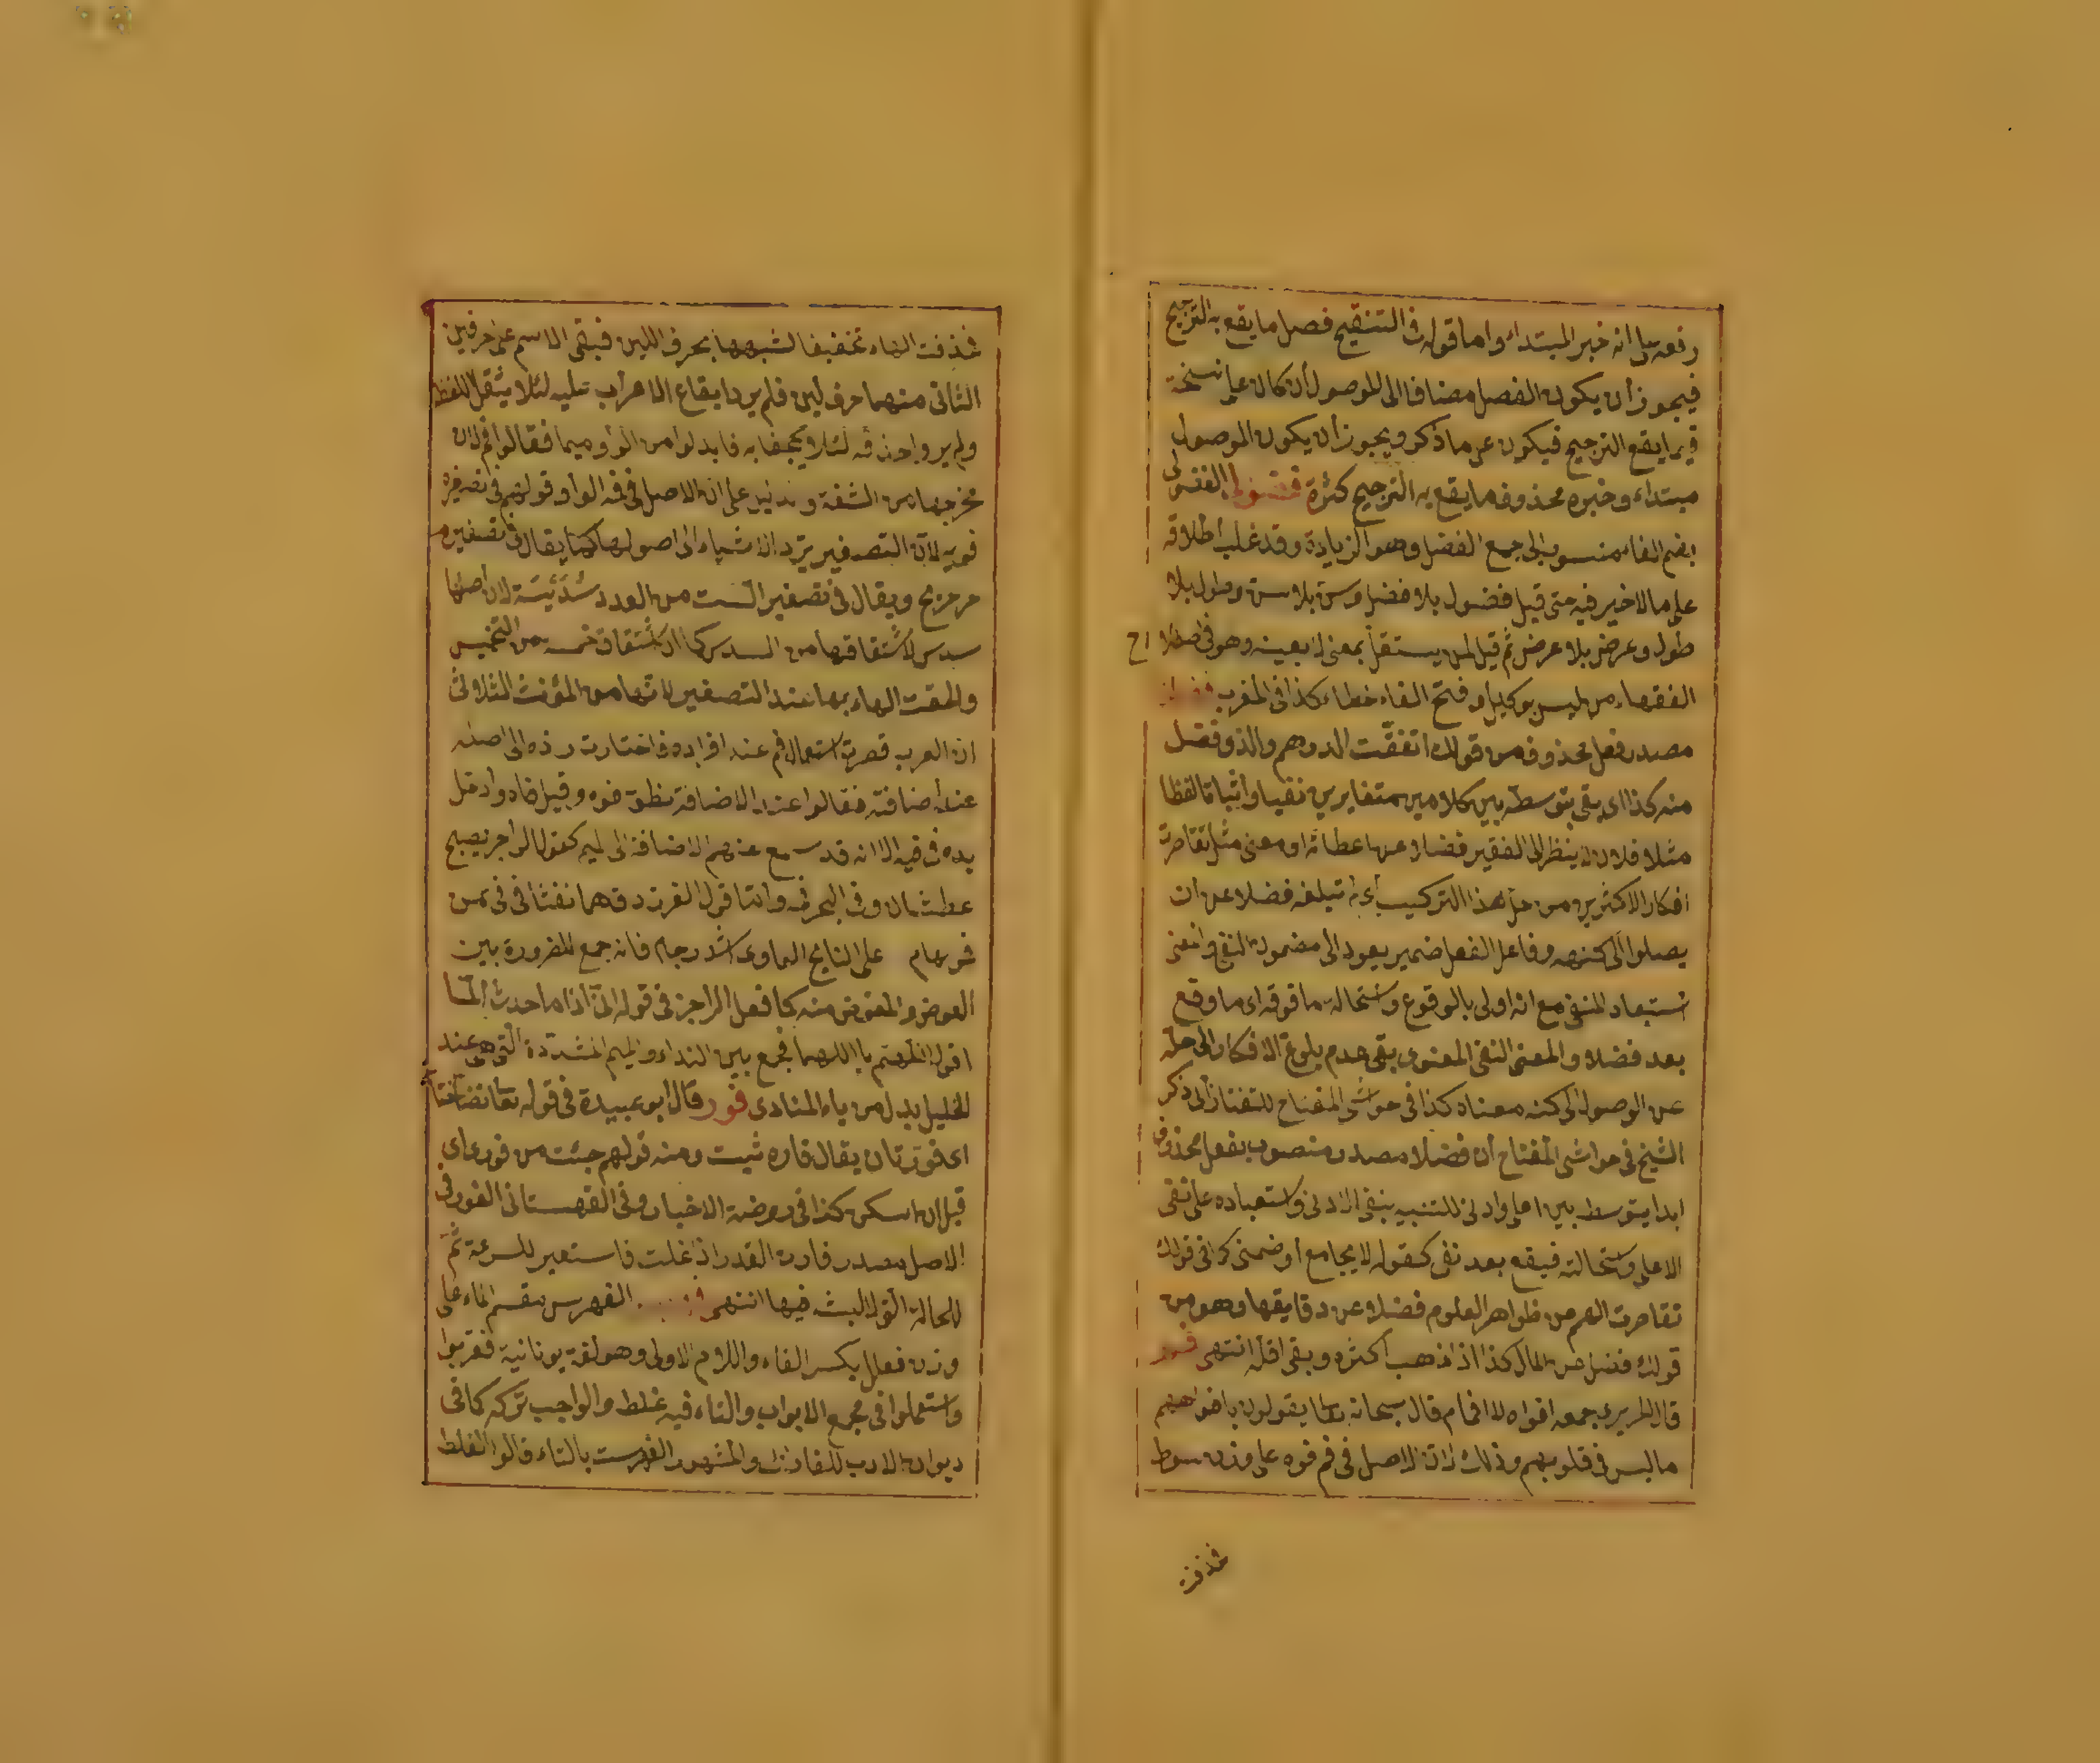 رفعه على انه خبر المبتداء واما قوله في التنقيح فصل ما يقع به الترجيح
فيجوز أن يكون الفصل مضافا الى الموصول أن كان على نسخة
فيما يقع الترجيح فيكون عن ما ذكر ويجوز أن يكون الموصول
مبتداء وخبره محذوف ما يقع به الترجيح كثرة فضولى الفضولى
بضم الفاء منسوب الى جمع الفضل وهو الزيادة وقد غلب اطلاقه
على مالا خير فيه حتى قيل فضول بلا فضل وسن بلا سن وطول بلا
طول وعرض بلا عرض ثم قيل لمن يستقل بمعنى لا يعينه وهو في اصطلا اح
الفقهاء من ليس بوكيل وفتح الفاء خطاء كذا في المغرب
مصدر فعل محذوف من قولك اتفقت الدرهم والذى فضل
منه كذا اى بقى بتوسطه بين كلامين متغايرين نفيا واثباتا لفظا
مثلا فلان لا ينظر الى الفقير فضلا عن اعطائه او معنى مثل تقاصرت
افكار الاكثرين من حل هذا التركيب اى لم تبلغه فضلا عن ان
يصلوا الى كنهه وفاعل الفعل ضمير يعود الى مضمون النفى والمعنى
استبعاد المنفى مع انه اولى بالوقوع واستحالة ما فوقه اى ما وقع
بعد فضلا والمعنى النفى المعنوى بقى عدم بلوغ الافكار الى حله
عن الوصول الى كنه معناه كذا في حواشى المفتاح للتفتازانى ذكر
الشيخ في حواشى المفتاح أن فضلا مصدر منصوب بفعل محذوف
ابدا يتوسط بين اعلى وادنى للتنبيه بنفى الادنى واستعباده على نفى
الاعلى واستحالته فيقع بعد نفى كقوله لا يجامع أو ضمنى كما في قولك
تقاصرت الهم عن ظواهر العلوم فضلا عن دقايقها وهو من
قولك فضل من المال كذا اذا ذهب اكثره وبقى اقله انتهى
قال الحريرى جمعه افواه لا افمام قال سبحانه تعا يقولون بافواههم
ما ليس في قلوبهم وذلك لان الاصل في فم فوه على وزن سوط
فحذفت
فحذفت الهاء تخفيفا لشبهها بحرف اللين فبقى الاسم على حرفين
الثانى منهما حرف لين فلم يروا ايقاع الاعراب عليه لئلا يثقل اللفظ
ولم يروا حذفه لئلا يجحفا به فابدلوا من الواو ميما فقالوا فم لان
مخرجها من الشفة وتدليل على ان الاصل في فم الواو قولهم في تصغيره
فويه لان التصغير يرد الاشياء الى اصولها كما يقال في تصغير حر
حريح ويقال في تصغير الست من العدد سديسة لان اصلها
سدس لاشتقاقها من السدس كما ان اشتقاق خمسة من التخميس
والحقت الهاء بها عند التصغير لانها من المؤنث الثلاثى
ان العرب قصرت استعمال فم عند افراده فاختارت رده الى اصله
عند اضافته فقالوا عند الاضافة نطق فوه وقبل فاه وادخل
يده في فيه الا انه قد سمع عنهم الاضافة الى الميم كقول الراجز يصبح
عطشان وفى البحر فمه واما قول الفرزدق هما نفثا في في من
فمويهما على النابح العاوى اشد رجام فانه جمع للضرورة بين
العوض والمعوض منه كما فعل الراجز في قوله انى اذا ما حدث المّا
اقول اللهم يا اللهما فجمع بين النداء والميم المشددة التى هى عند
الخليل بدل من ياء المنادى فور قال ابو عبيدة في قوله تعا نضاختا
اى فورتان يقال فاره ثبت ومنه قولهم جئت من فورى اى
قبل ان اسكن كذا في روضة الاخبار وفى القهستانى الفور في
الاصل مصدر فارت القدر اذا غلت فاستعير للسرعة ثم
للحالة التى لا لبث فيها انتهى الفهرس مقسم الماء على
وزن فعلل بكسر الفاء واللام الاولى وهو لغة يونانية فعربوا
واستعملوا في مجمع الابواب والتاء فيه غلط والواجب تركه كما في
ديوان الادب للفارابى والمشهور الفهرست بالتاء قالوا الغلط